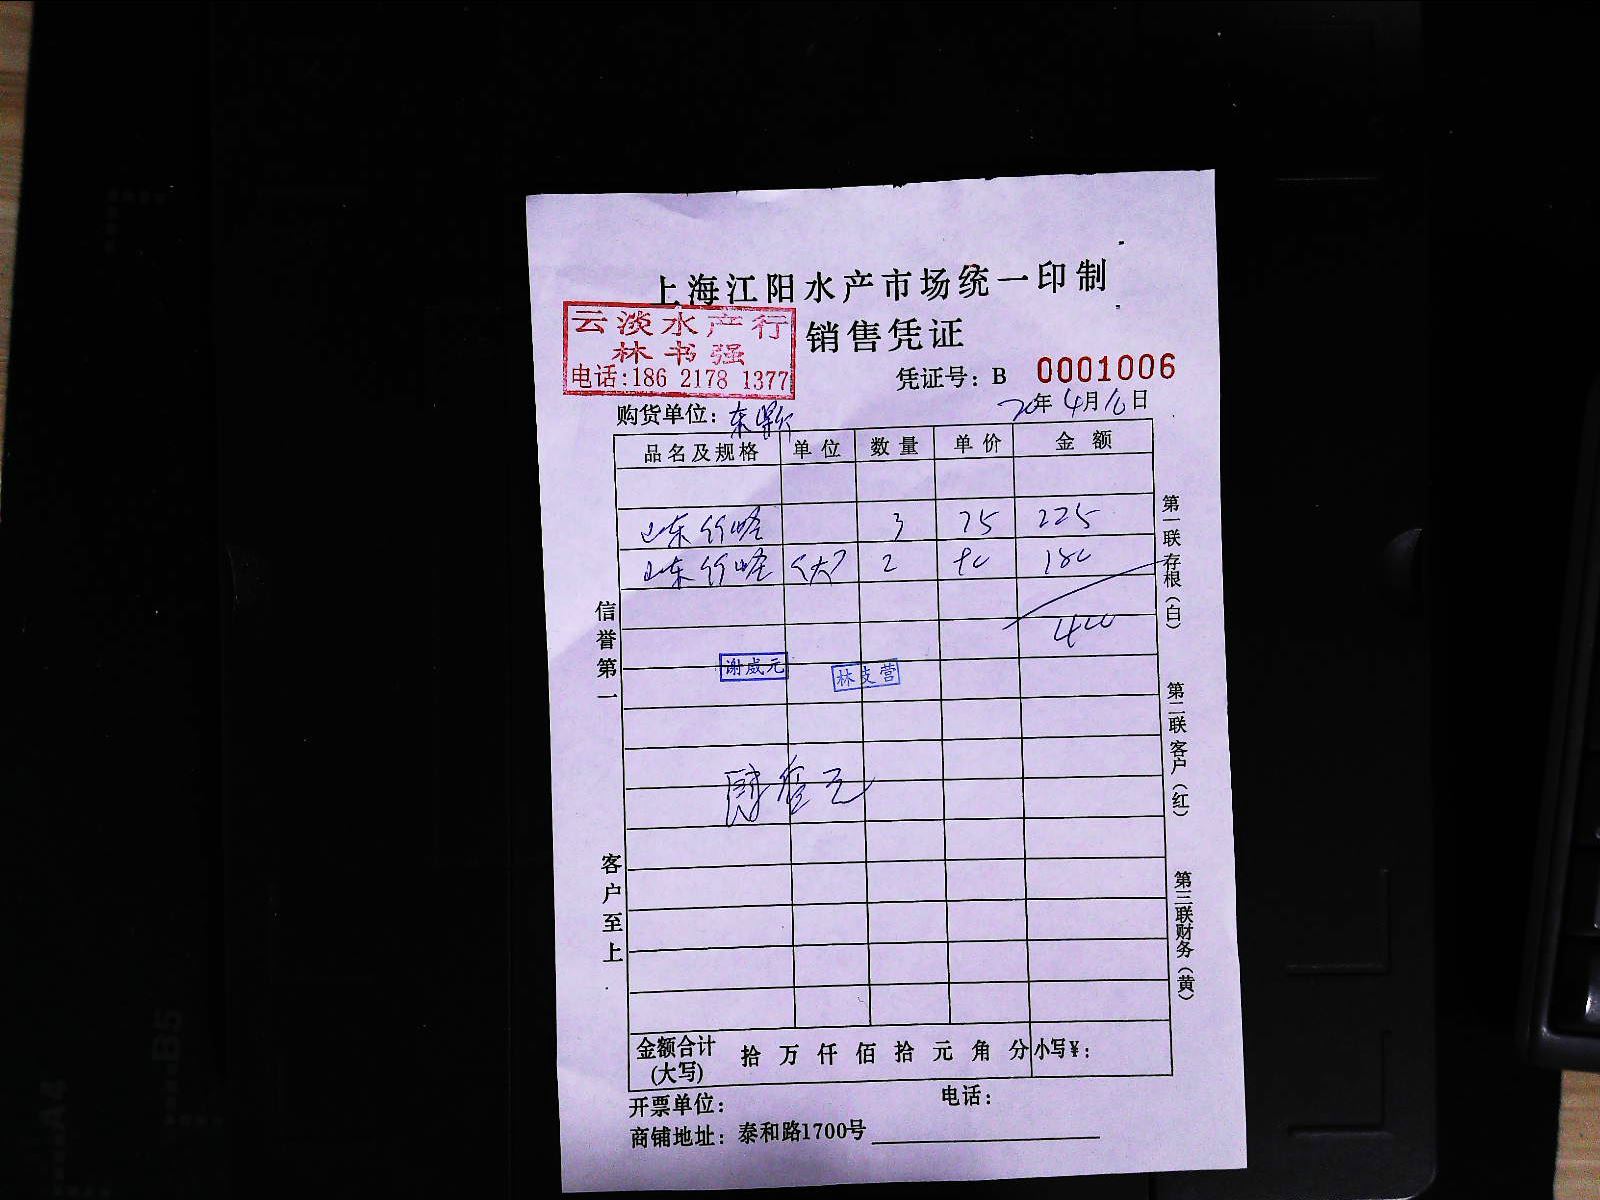 上海江阳水产市场统一印制
销售凭证
云淡水产行
林书强
电话:186 2178 1377
凭证号：B 0001006
20年4月16日
购货单位：东
品名及规格 单位 数量 单价 金额
山东竹蛏 3 75 225
山东竹蛏 (大) 2 90 180
400
谢威元 林支营
信誉第一
客户至上
第一联 存根（白）
第二联 客户（红）
第三联 财务（黄）
金额合计(大写) 拾 万 仟 佰 拾 元 角 分 小写¥：
开票单位： 电话：
商铺地址：泰和路1700号